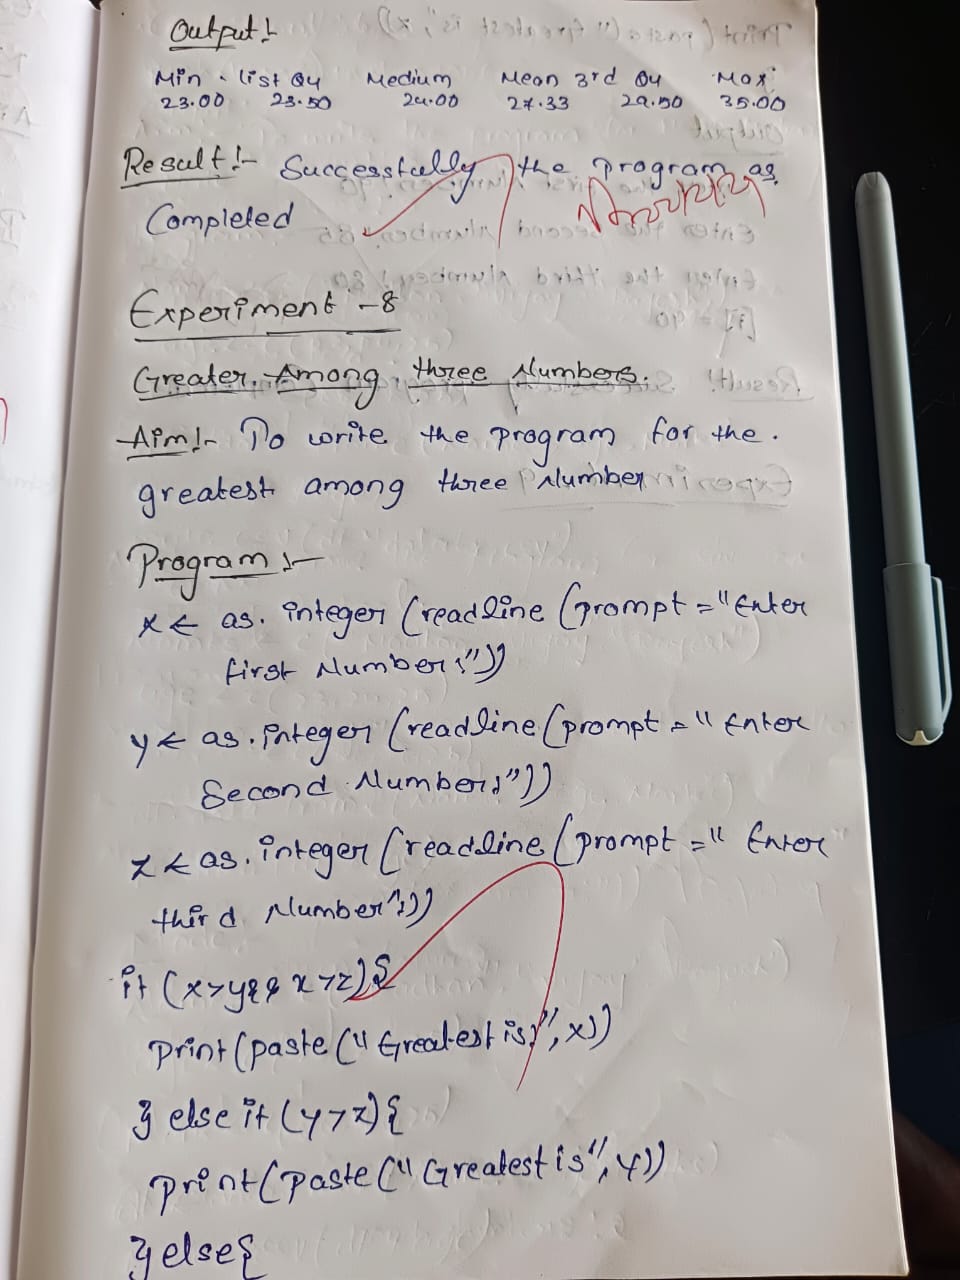 Output:-
Min . list Qu Medium Mean 3rd Qu Max
23.00 23.50 24.00 27.33 29.50 35.00
Result:- Successfully the program as
Completed
Experiment -8
Greater Among three Numbers.
Aim:- To write the program for the.
greatest among three Number
Program :-
x ← as. integer (readline (prompt = "Enter
first Number:"))
y ← as. integer (readline (prompt = " Enter
Second Number:"))
z ← as. integer (readline (prompt = " Enter
third Number":))
if (x>y&& x>z){
print(paste(" Greatest is:", x))
} else if (y>z){
print(paste(" Greatest is", y))
} else{